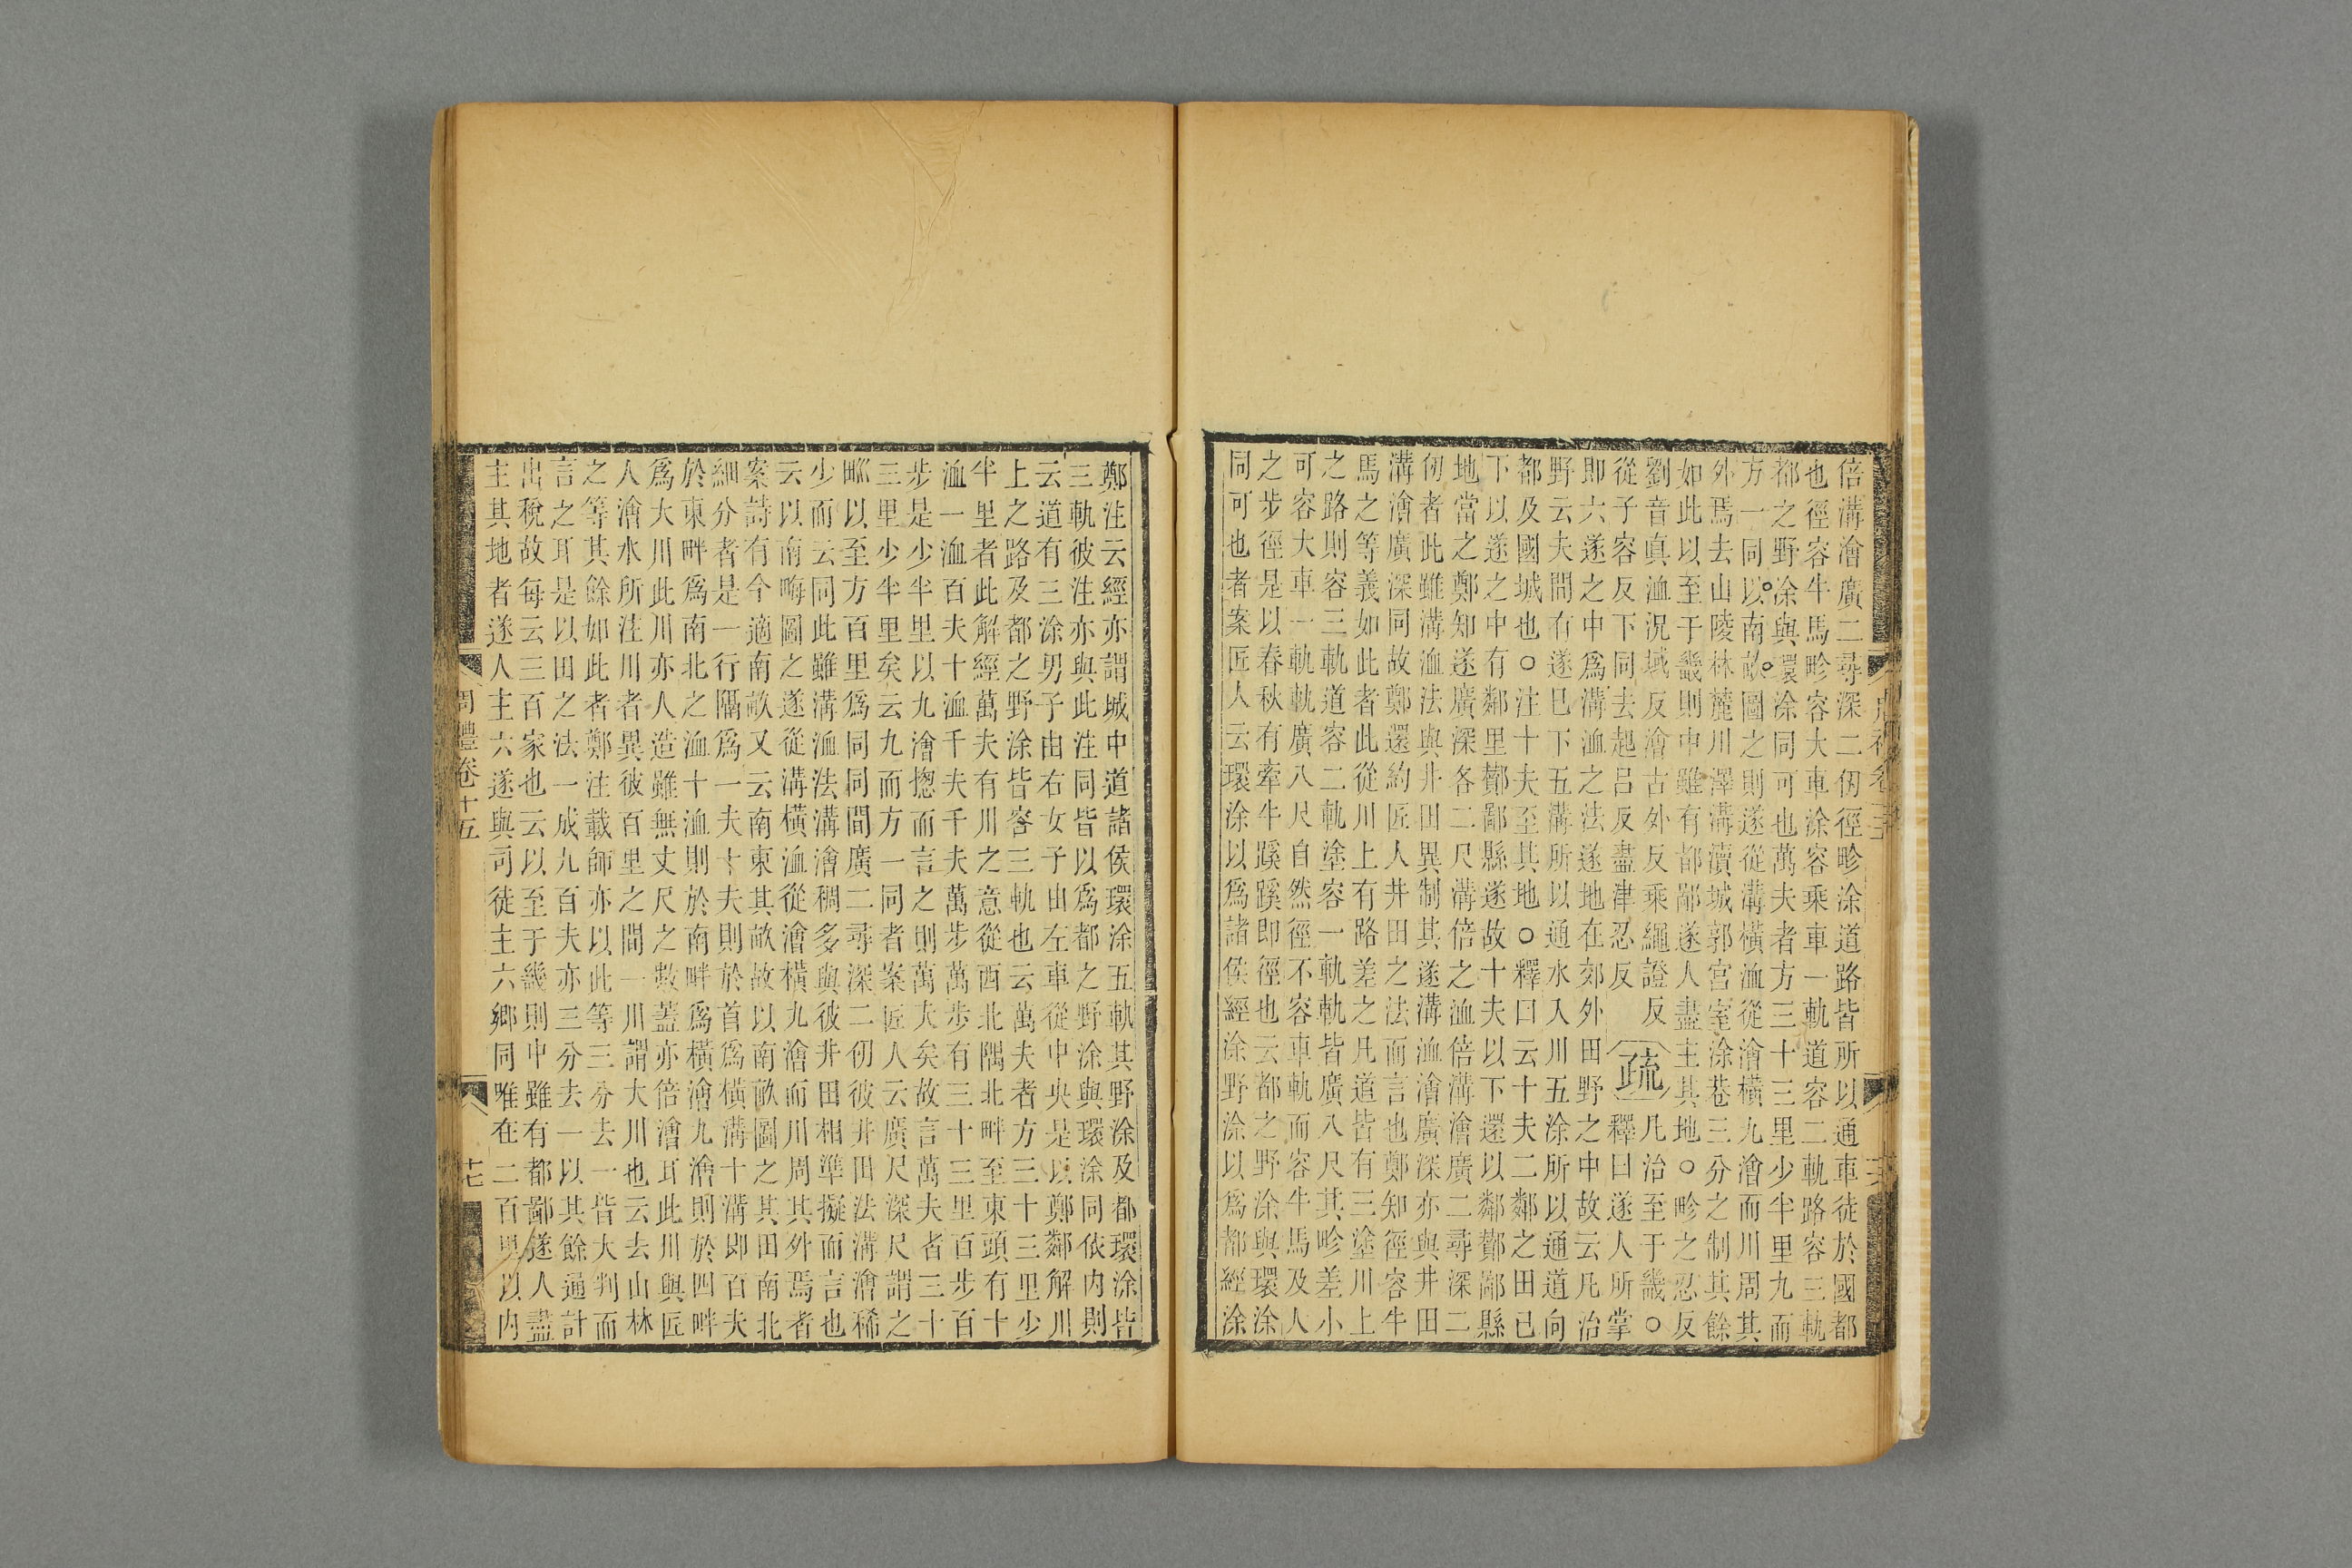 倍溝澮廣二尋深二仞徑畛涂道路皆所以通車徒於國都
也徑容牛馬畛容大車涂容乘車一軌道容二軌路容三軌
都之野涂與環涂同可也萬夫者方三十三里少半里九而
方一同以南畝圖之則遂從溝橫洫從澮橫九澮而川周其
外焉去山陵林麓川澤溝瀆城郭宮室涂巷三分之制其餘
如此以至于畿則中雖有都鄙遂人盡主其地○畛之忍反
劉音真洫況域反澮古外反乘繩證反
從子容反下同去起呂反盡津忍反
疏
凡治至于畿○
釋曰遂人所掌
即六遂之中為溝洫之法遂地在郊外田野之中故云凡治
野云夫間有遂巳下五溝所以通水入川五涂所以通道向
都及國城也○注十夫至其地○釋曰云十夫二鄰之田已
下以遂之中有鄰里酇鄙縣遂故十夫以下還以鄰酇鄙縣
地當之鄭知遂廣深各二尺溝倍之洫倍溝澮廣二尋深二
仞者此雖溝洫法與井田異制其遂溝洫澮廣深亦與井田
溝澮廣深同故鄭還約匠人井田之法而言也鄭知徑容牛
馬之等義如此者此從川上有路差之凡道皆有三塗川上
之路則容三軌道容二軌塗容一軌軌皆廣八尺其畛差小
可容大車一軌軌廣八尺自然徑不容車軌而容牛馬及人
之步徑是以春秋有牽牛蹊蹊即徑也云都之野涂與環涂
同可也者案匠人云環涂以為諸侯經涂野涂以為都經涂
鄭注云經亦謂城中道諸侯環涂五軌其野涂及都環涂皆
三軌彼注亦與此注同皆以為都之野涂與環涂同依内則
云道有三涂男子由右女子由左車從中央是以鄭解川
上之路及都之野涂皆容三軌也云萬夫者方三十三里少
半里者此解經萬夫有川之意從西北隅北畔至東頭有十
洫一洫百夫十洫千夫千夫萬步萬步有三十三里百步百
步是少半里以九澮揔而言之則萬夫矣故言萬夫者三十
三里少半里矣云九而方一同者案匠人云廣尺深尺謂之
畎以至方百里為同同間廣二尋深二仞彼井田法溝澮稀
少而云同此雖溝洫法溝澮稠多與彼井田相準擬而言也
云以南畮圖之遂從溝橫洫從澮橫九澮而川周其外焉者
案詩有今適南畝又云南東其畝故以南畝圖之其田南北
細分者是一行隔為一夫十夫則於首為橫溝十溝即百夫
於東畔為南北之洫十洫則於南畔為橫澮九澮則於四畔
為大川此川亦人造雖無丈尺之數蓋亦倍澮耳此川與匠
人澮水所注川者異彼百里之間一川謂大川也云去山林
之等其餘如此者鄭注載師亦以此等三分去一皆大判而
言之耳是以田之法一成九百夫亦三分去一以其餘通計
出稅故每云三百家也云以至于畿則中雖有都鄙遂人盡
主其地者遂人主六遂與司徒主六鄉同唯在二百里以内
周禮卷十五